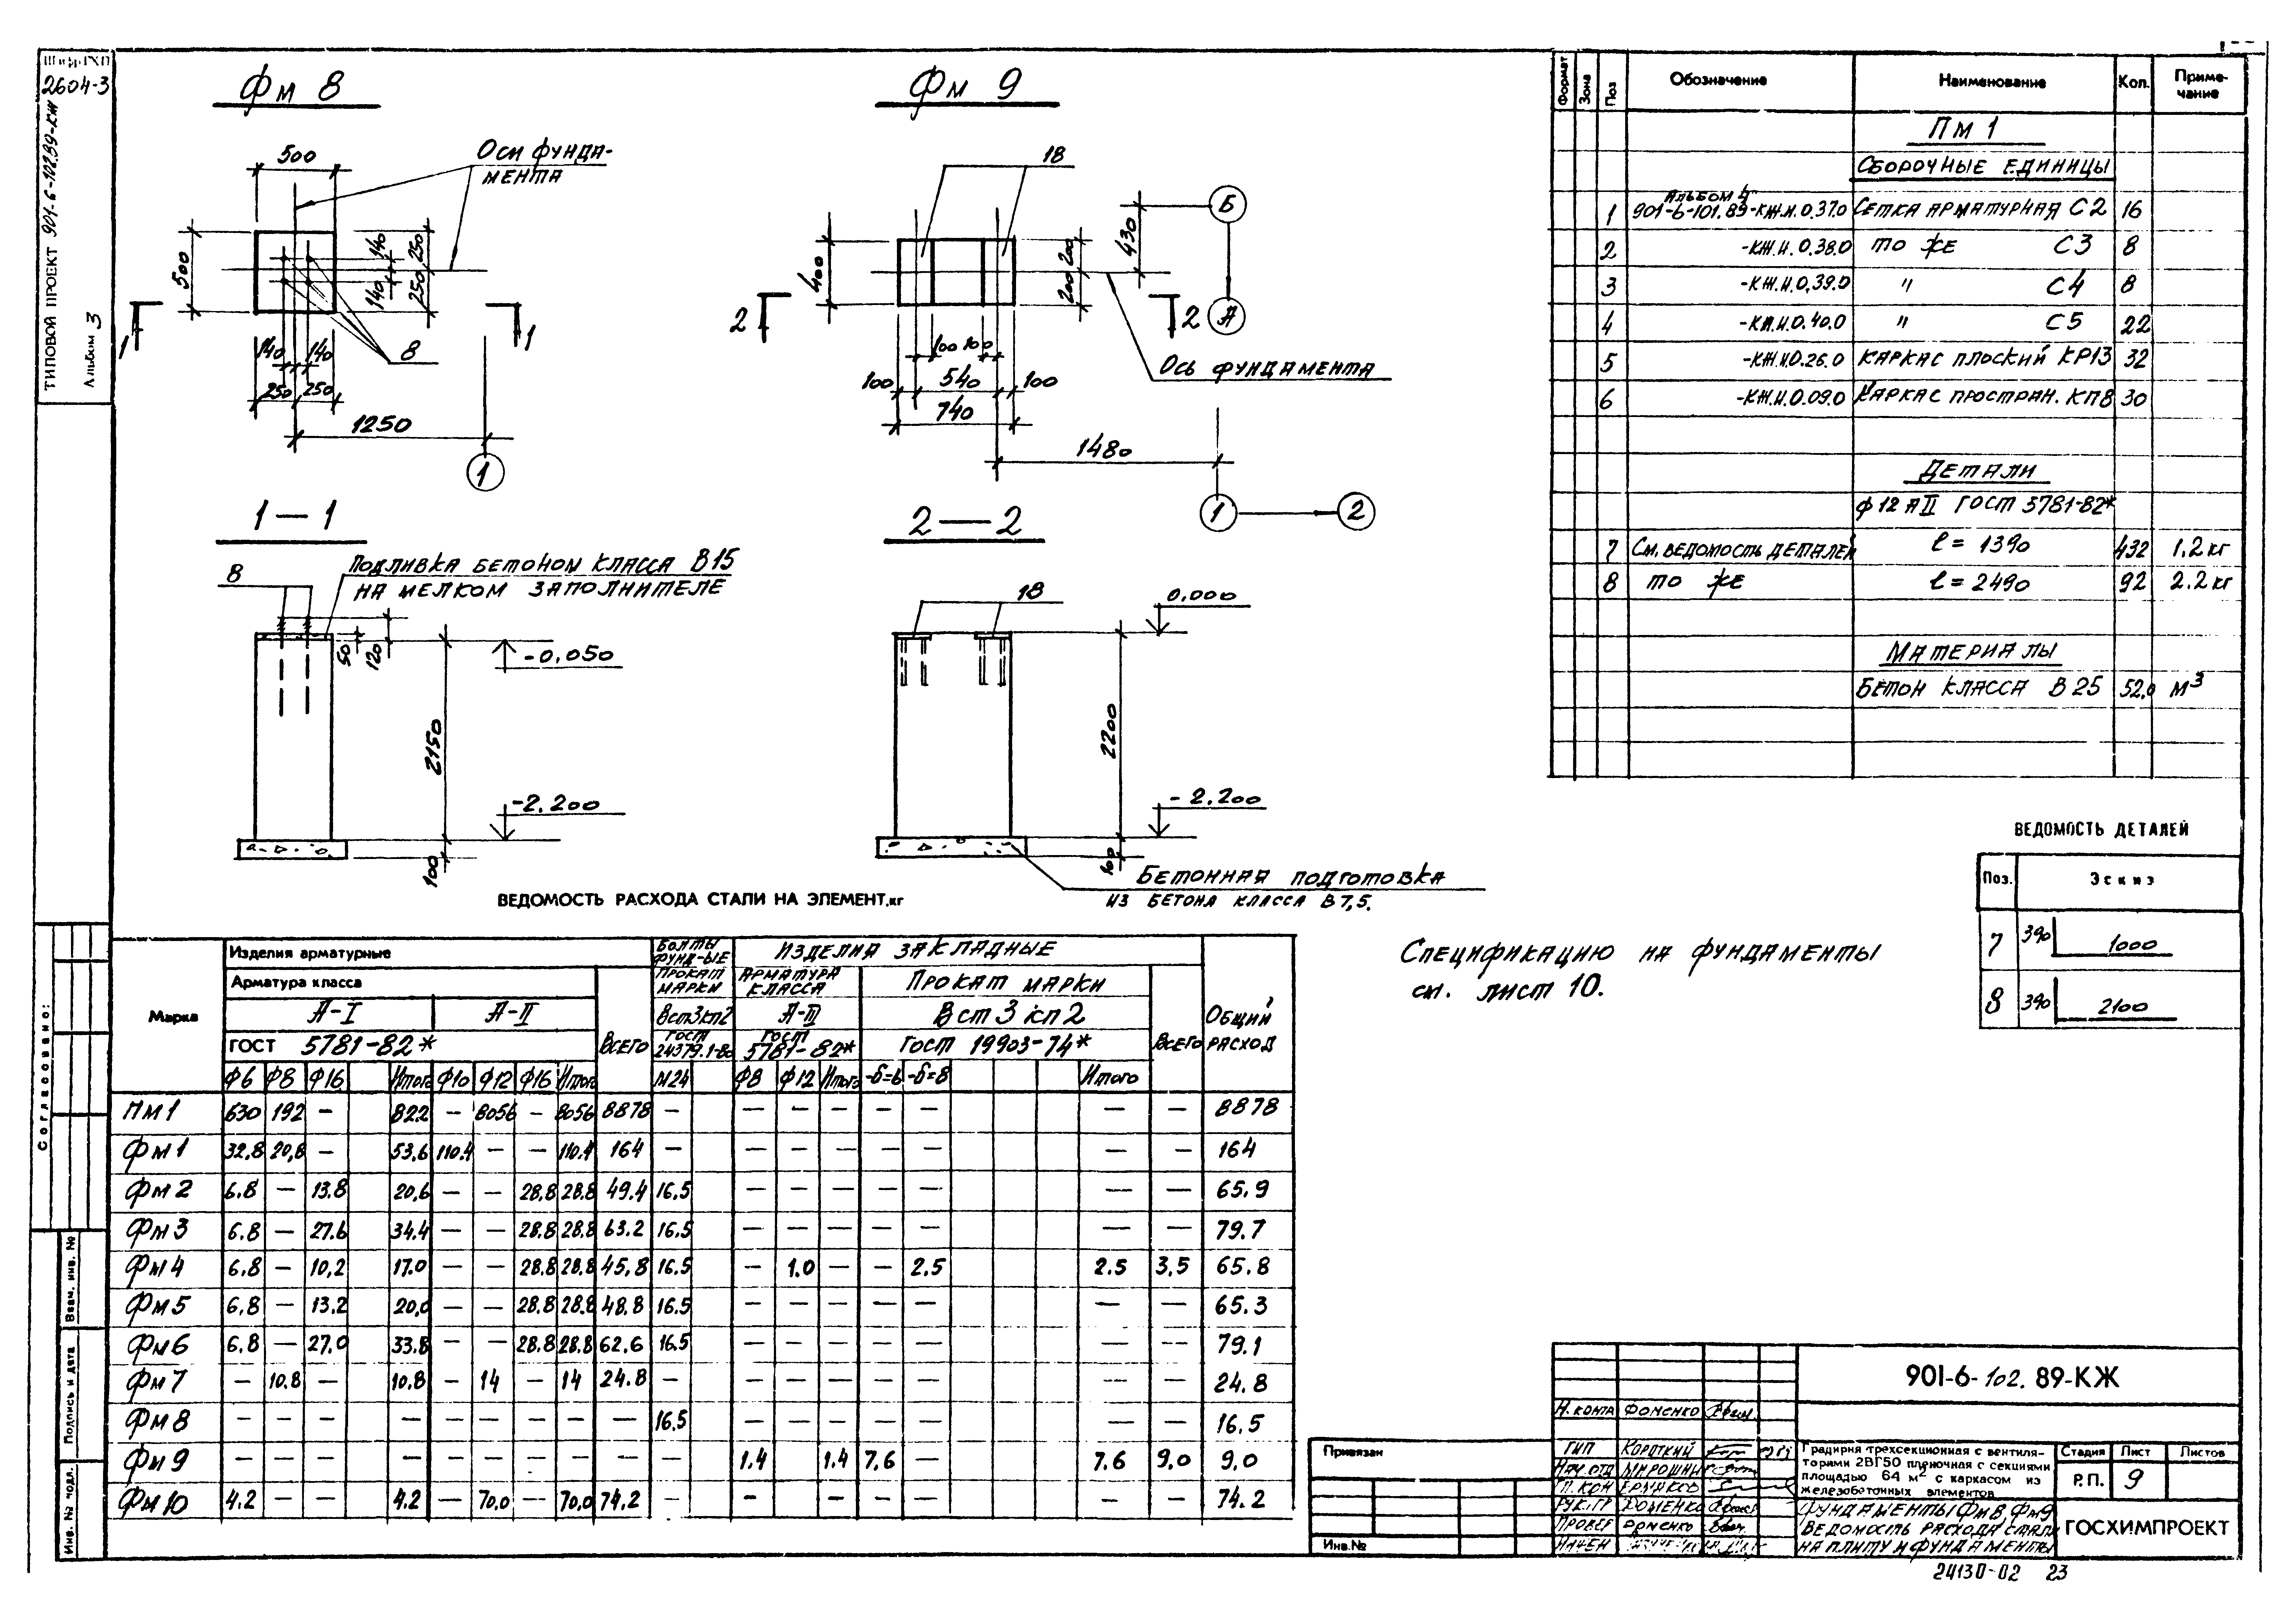 2604-3
ТИПОВОЙ ПРОЕКТ 901-6-102.89-КЖ
Альбом 3
Фм 8
500
Оси фунда-
мента
500
140
140
250
250
1
1
140
140
8
250
250
1250
1
Фм 9
18
Б
430
400
200
200
2
2
А
100 100
100
540
100
740
Ось фундамента
1480
1
2
1—1
8
Подливка бетоном класса В15
на мелком заполнителе
50
120
-0,050
2150
-2.200
100
2—2
18
0,000
2200
-2.200
100
Бетонная подготовка
из бетона класса В7,5.
Формат
Зона
Поз
Обозначение
Наименование
Кол.
Приме-
чание
Пм 1
Сборочные единицы
Альбом 4
1 901-6-101.89-КЖ.И.0.37.0 Сетка арматурная С2 16
2 -КЖ.И.0.38.0 то же С3 8
3 -КЖ.И.0.39.0 " С4 8
4 -КЖ.И.0.40.0 " С5 22
5 -КЖ.И.0.26.0 Каркас плоский КР13 32
6 -КЖ.И.0.09.0 Каркас простран. КП8 30
Детали
ф12 АII ГОСТ 5781-82*
7 См. ведомость деталей ℓ= 1390 432 1.2 кг
8 то же ℓ= 2490 92 2.2 кг
Материалы
Бетон класса В 25 52,0 м³
ВЕДОМОСТЬ ДЕТАЛЕЙ
Поз. Эскиз
7 390 1000
8 390 2100
Спецификацию на фундаменты
см. лист 10.
ВЕДОМОСТЬ РАСХОДА СТАЛИ НА ЭЛЕМЕНТ, кг
Марка
Изделия арматурные
Арматура класса
А-I А-II
ГОСТ 5781-82*
Всего
Болты
фунд-ые
Прокат
марки
Вст3кп2
ГОСТ
24379.1-80
Изделия закладные
Арматура
класса
А-III
ГОСТ
5781-82*
Прокат марки
Вст3кп2
ГОСТ 19903-74*
Всего
Общий
расход
Ф6 Ф8 Ф16 Итого Ф10 Ф12 Ф16 Итого М24 Ф8 Ф12 Итого -δ=6 -δ=8 Итого
Пм1 630 192 — 822 — 8056 — 8056 8878 — — — — — — — — 8878
Фм1 32,8 20,8 — 53,6 110.4 — — 110.4 164 — — — — — — — — 164
Фм2 6.8 — 13.8 20,6 — — 28.8 28.8 49.4 16.5 — — — — — — — 65.9
Фм3 6.8 — 27.6 34.4 — — 28.8 28.8 63.2 16.5 — — — — — — — 79.7
Фм4 6.8 — 10,2 17.0 — — 28.8 28.8 45,8 16.5 — 1.0 — — 2.5 2.5 3.5 65.8
Фм5 6.8 — 13.2 20,0 — — 28.8 28.8 48.8 16.5 — — — — — — — 65.3
Фм6 6.8 — 27.0 33.8 — — 28.8 28.8 62.6 16.5 — — — — — — — 79.1
Фм7 — 10.8 — 10.8 — 14 — 14 24.8 — — — — — — — — 24.8
Фм8 — — — — — — — — — 16.5 — — — — — — — 16,5
Фм9 — — — — — — — — — 1.4 1.4 7.6 — 7.6 9.0 9.0
Фм10 4.2 — — 4.2 — 70,0 — 70,0 74,2 — — — — — — — — 74.2
Согласовано:
Взам. инв. №
Подпись и дата
Инв. № подл.
Привязан
Инв.№
901-6-102.89-КЖ
Н. контр Фоменко
ГИП Короткий
Нач. отд
Гл. кон Ермаков
Рук. гр Фоменко
Провер Фоменко
Градирня трехсекционная с вентиля-
торами 2ВГ50 пленочная с секциями
площадью 64 м² с каркасом из
железобетонных элементов
Стадия Лист Листов
Р.П. 9
Фундаменты Фм8, Фм9
Ведомость расхода стали
на плиту и фундаменты
ГОСХИМПРОЕКТ
24130-02 23